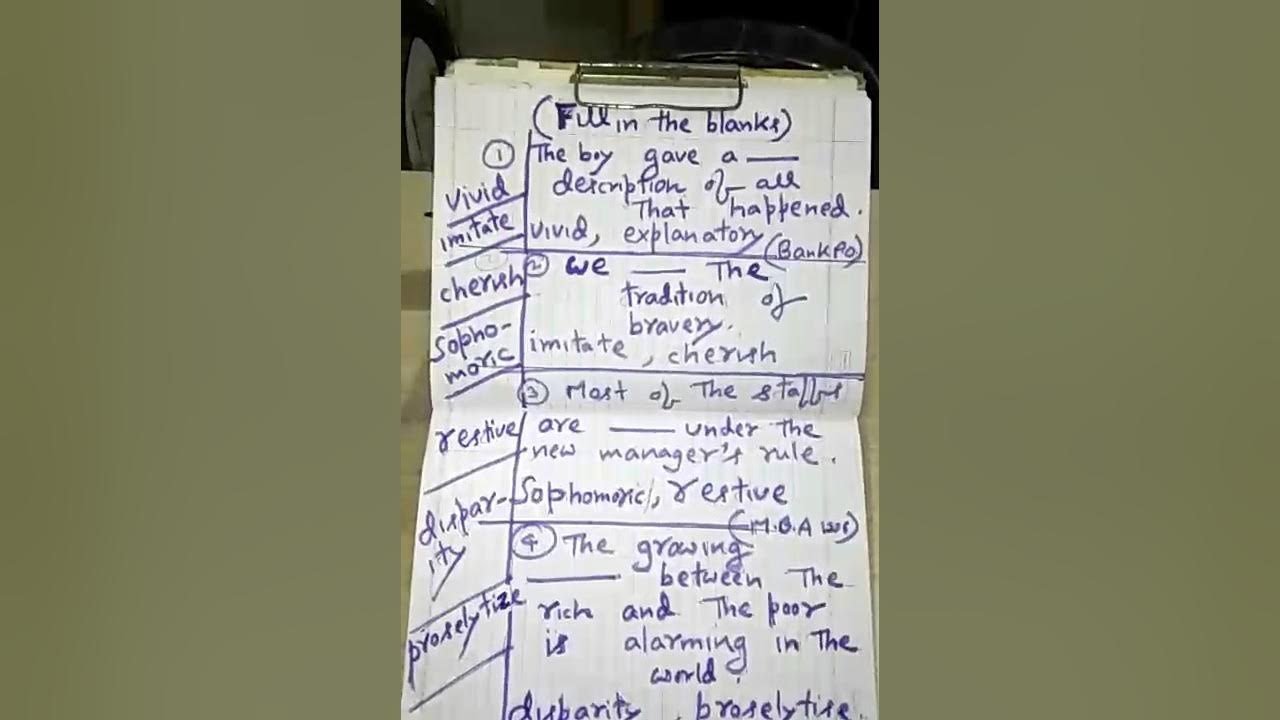 (Fill in the blanks)
① The boy gave a ——
description of all
That happened.
vivid, explanatory (Bank PO)
② we —— The
tradition of
bravery.
imitate, cherish
③ Most of The staffs
are —— under The
new manager's rule.
Sophomoric, restive
(M.B.A
④ The growing
—— between The
rich and The poor
is alarming in The
world.
disparity, proselytise.
vivid
imitate
cherish
Sopho-
moric
restive
dispar-
ity
proselytize